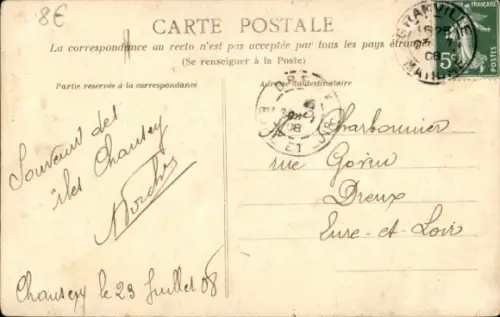 8€
CARTE POSTALE
La correspondance au recto n'est pas acceptée par tous les pays étran
(Se renseigner à la Poste)
Partie réservée à la correspondance
Adresse du destinataire
GRANVILLE
08
MANCHE
FRANÇAISE
5c
DREUX
08
EURE ET LOIR
Souvenir des
îles Chausey
Chausey le 23 Juillet 08
Charbonnier
rue
Dreux
Eure-et-Loir